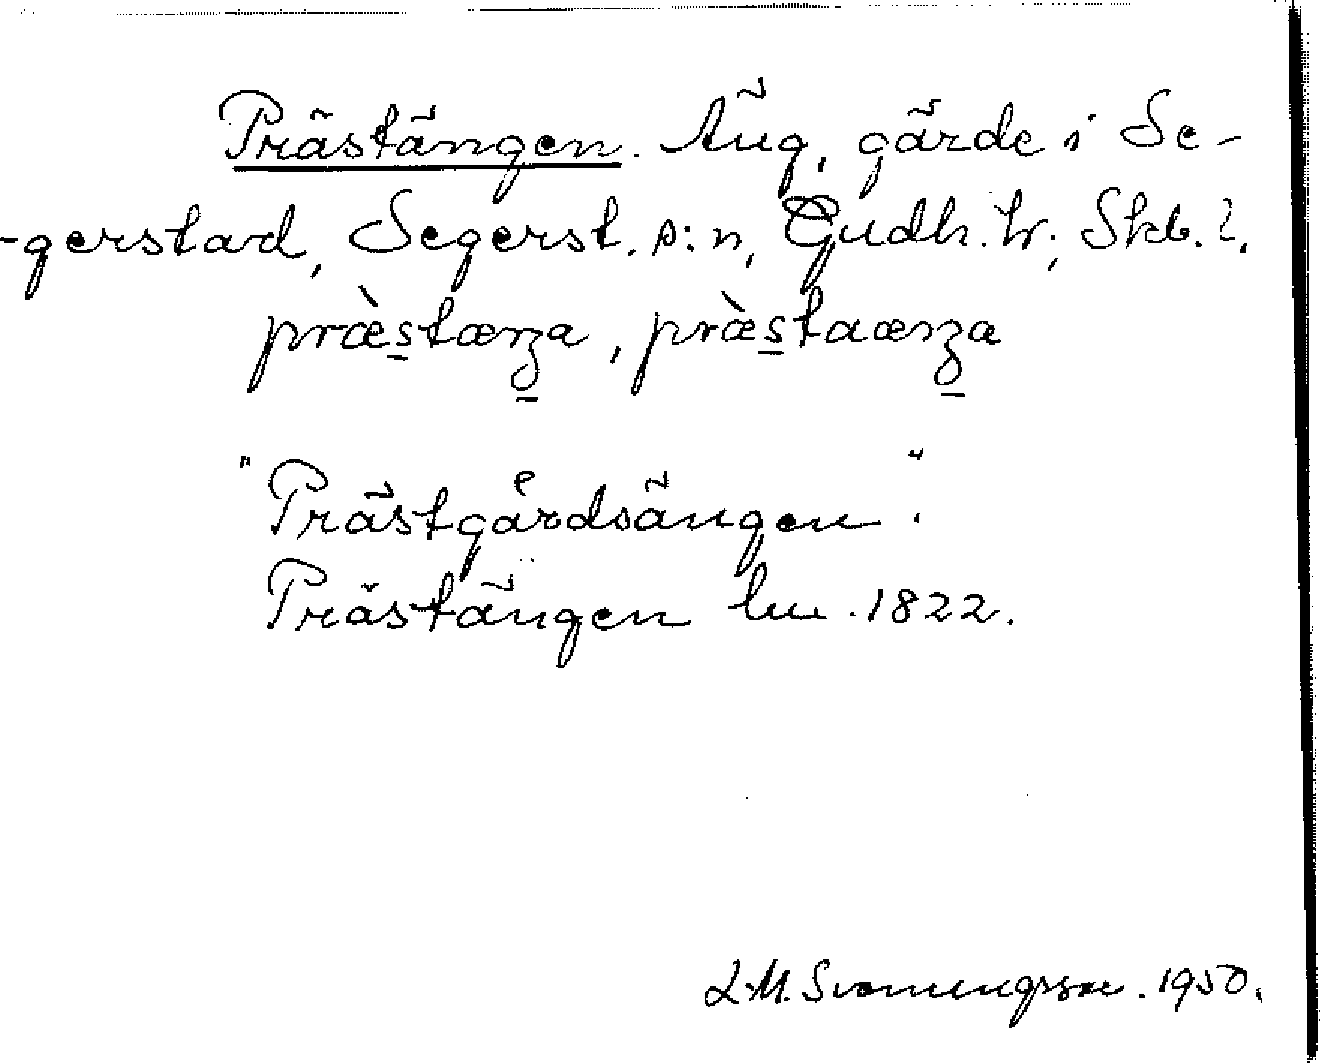 Prästängen. Äng, gärde i Se-
-gerstad, Segerst. s:n, Gudh. hr; Skb. l.
præ̀stænga, præ̀staænga
"Prästgårdsängen".
Prästängen lm. 1822.
1950.